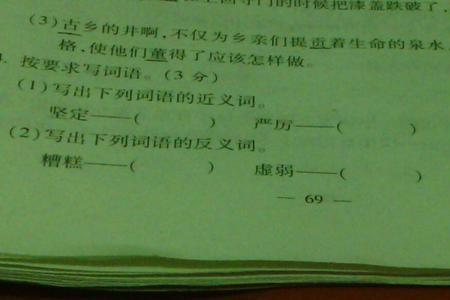 时候把漆盖跌破了,
(3)古乡的井啊,不仅为乡亲们提贡着生命的泉水,
格,使他们董得了应该怎样做。
按要求写词语。(3分)
(1)写出下列词语的近义词。
坚定——( ) 严厉——( )
(2)写出下列词语的反义词。
糟糕——( ) 虚弱——( )
— 69 —